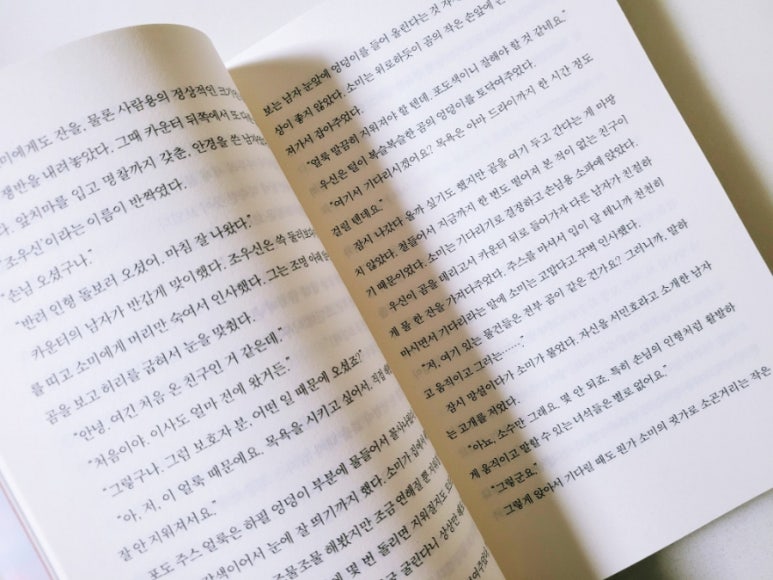 미에게도 잔을, 물론 사람용의 정상적인 크기
쟁반을 내려놓았다. 그때 카운터 뒤쪽에서 또 다
다. 앞치마를 입고 명찰까지 갖춘, 안경을 쓴 남자
'조우신'이라는 이름이 반짝였다.
"손님 오셨구나."
"반려 인형 돌보러 오셨어, 마침 잘 나왔다."
카운터의 남자가 반갑게 맞이했다. 조우신은 쓱 둘러보
를 띠고 소미에게 머리만 숙여서 인사했다. 그는 조명 아래
곰을 보고 허리를 굽혀서 눈을 맞췄다.
"안녕, 여긴 처음 온 친구인 거 같은데."
"처음이야. 이사도 얼마 전에 왔거든."
"그렇구나. 그럼 보호자 분, 어떤 일 때문에 오셨죠?"
"아, 저, 이 얼룩 때문에요. 목욕을 시키고 싶어서, 직접
잘 안 지워져서요."
포도 주스 얼룩은 하필 엉덩이 부분에 물들어서
색이어서 눈에 잘 띄기까지 했다. 소미가 집에서
조물조물 해봤지만 조금 연해질 뿐
에 몇 번 돌리면 지워질지도
굴린다니 상상만
보는 남자 눈앞에 엉덩이를 들어 올린다는 것
상이 좋지 않았다. 소미는 위로하듯이 곰의 작은 손앞에
져가서 잡아주었다.
"얼룩 말끔히 지워져야 할 텐데. 포도색이니 잘해야 할 것 같네요."
우신은 털이 복슬복슬한 곰의 엉덩이를 토닥여주었다.
"여기서 기다리시겠어요? 목욕은 아마 드라이까지 한 시간 정도
걸릴 텐데요."
잠시 나갔다 올까 싶기도 했지만 곰을 여기 두고 간다는 게 마땅
지 않았다. 철들어서 지금까지 한 번도 떨어져 본 적이 없는 친구이
기 때문이었다. 소미는 기다리기로 결정하고 손님용 소파에 앉았다.
우신이 곰을 데리고서 카운터 뒤로 들어가자 다른 남자가 친절하
게 품 한 잔을 가져다주었다. 주스를 마셔서 입이 달 테니까 천천히
마시면서 기다리라는 말에 소미는 고맙다고 꾸벅 인사했다.
"저, 여기 있는 물건들은 전부 곰이 같은 건가요? 그러니까, 말하
고 움직이고 그러는……."
잠시 망설이다가 소미가 물었다. 자신을 서민호라고 소개한 남자
는 고개를 저었다.
"아뇨, 소수만 그래요. 몇 안 되죠. 특히 손님의 인형처럼 활발하
게 움직이고 말할 수 있는 녀석들은 별로 없어요."
"그렇군요."
그렇게 앉아서 기다릴 때도 뭔가 소미의 귓가로 소곤거리는 작은